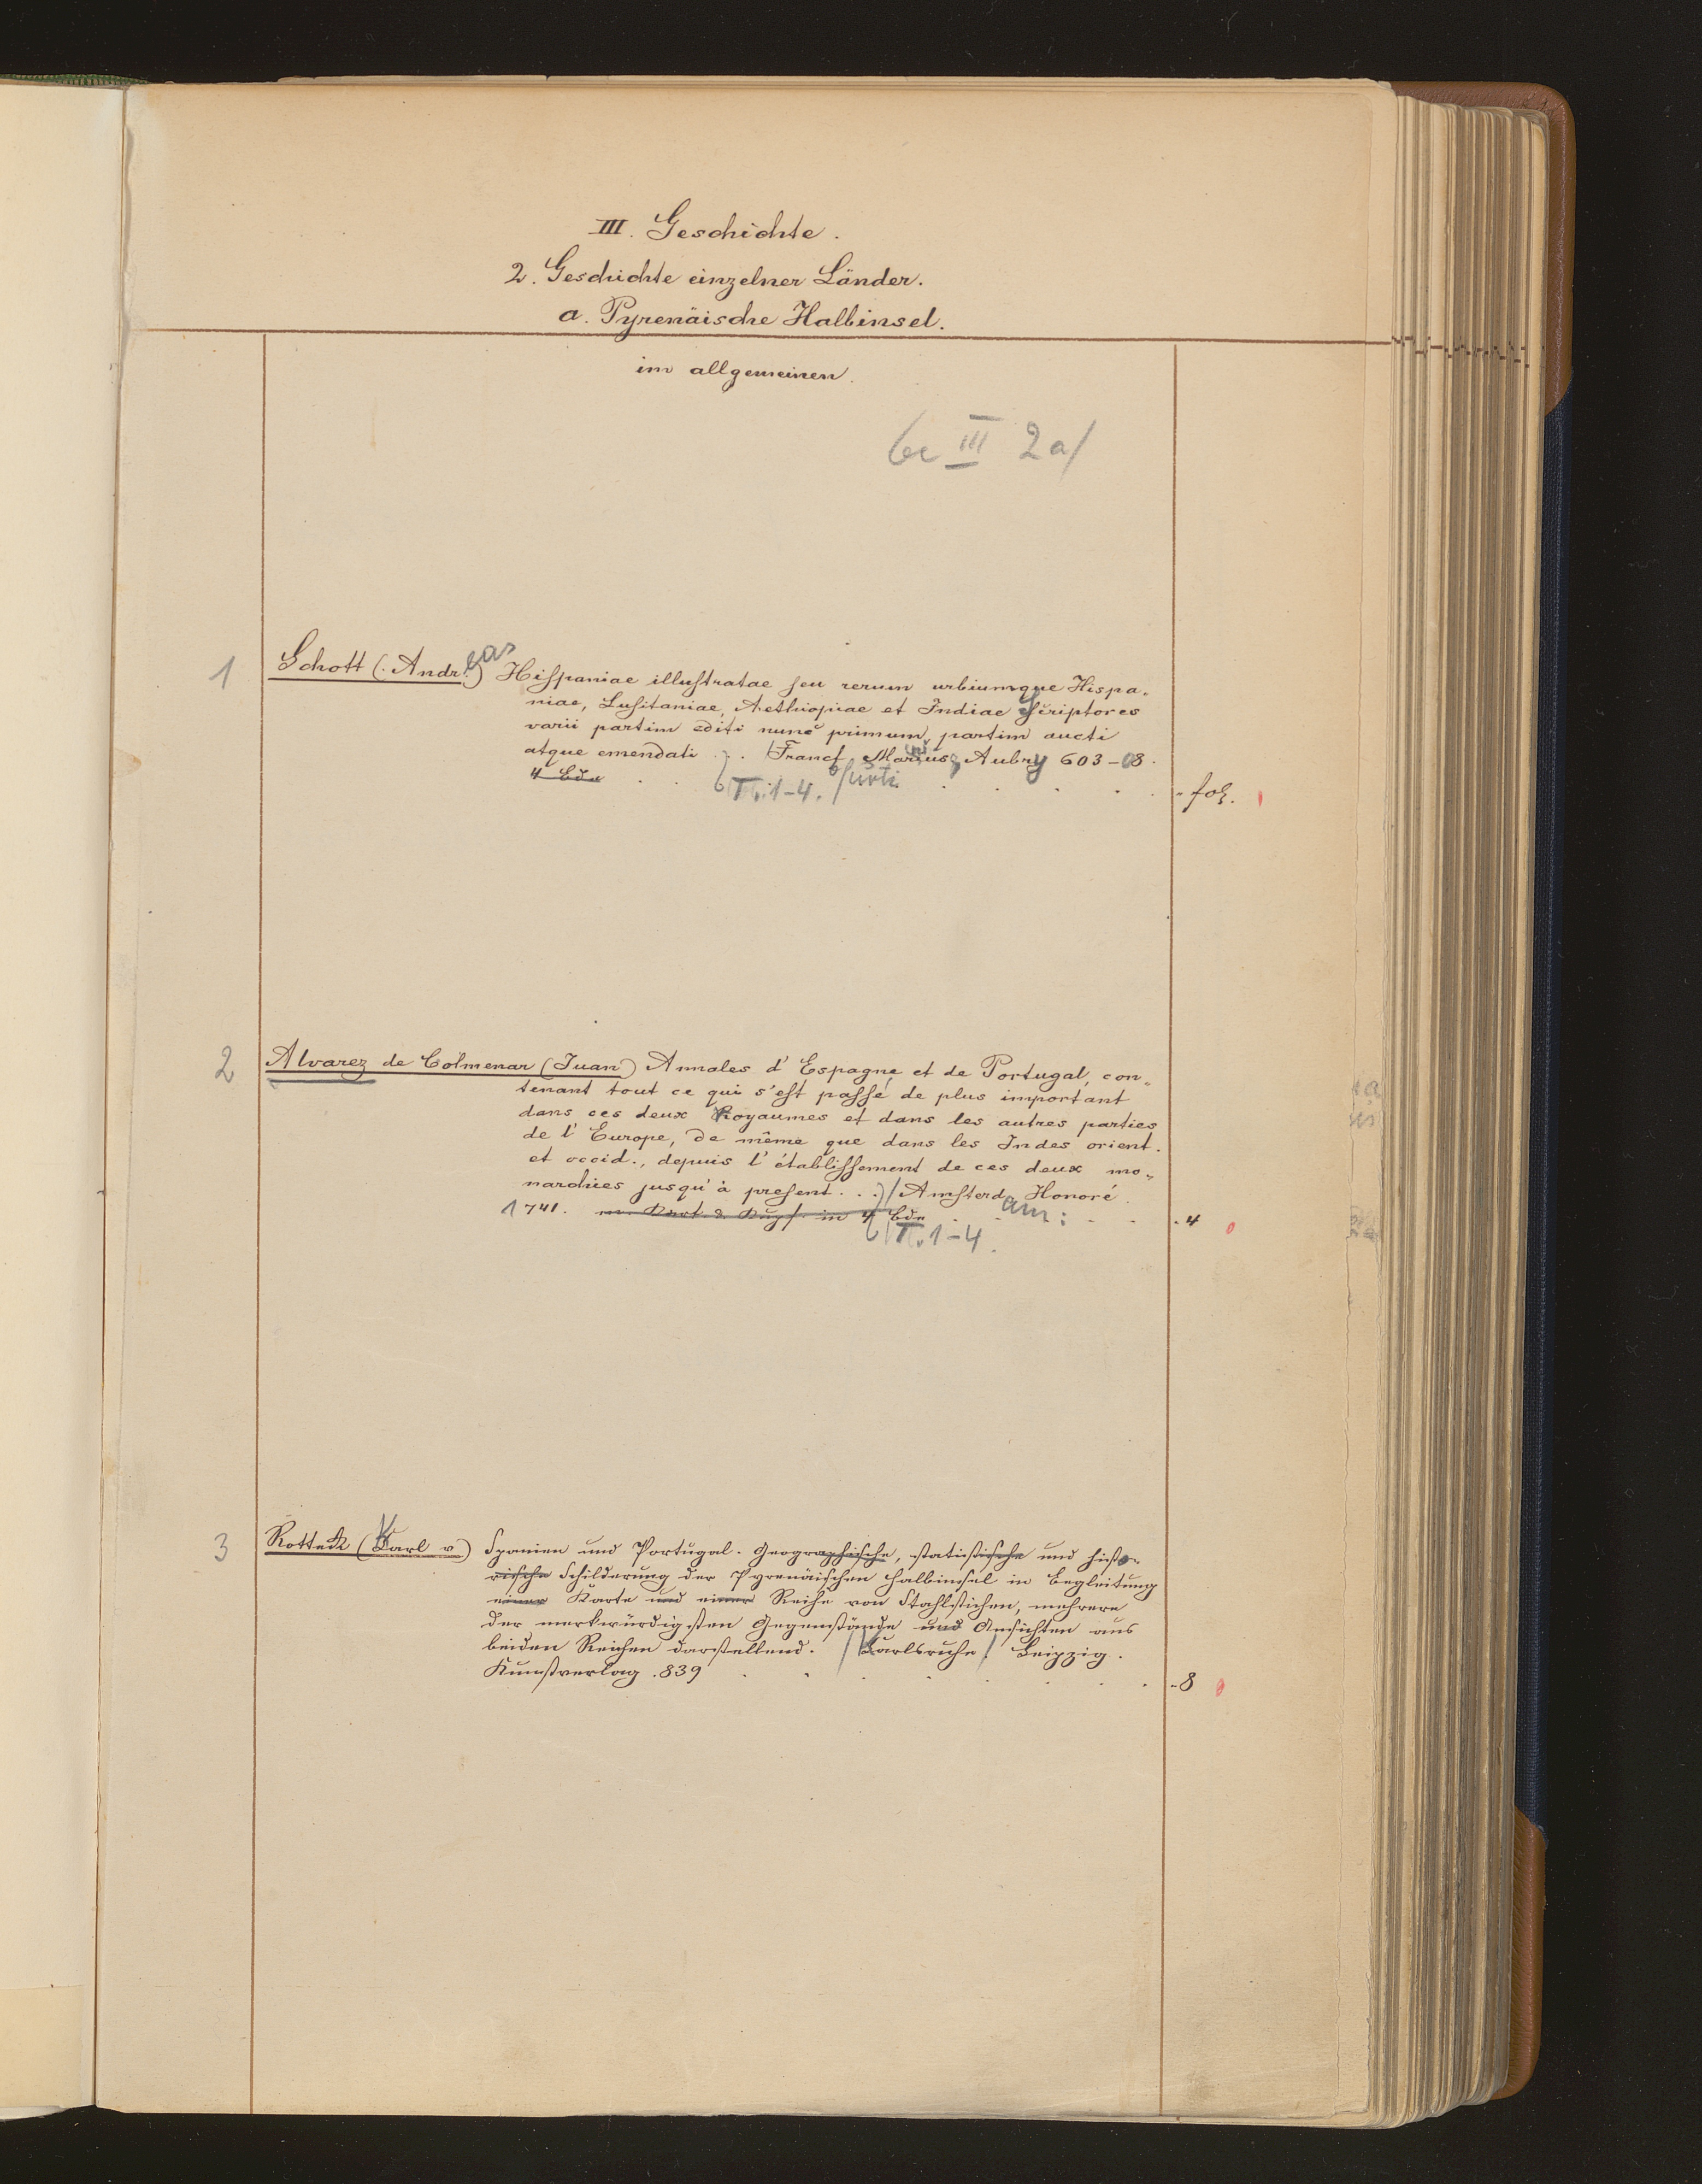 III. Geschichte.
2. Geschichte einzelner Länder.
a. Pyrenäische Halbinsel.
im allgemeinen.
III 2a/
1 Schott (Andreas) Hispaniae illustratae seu rerum urbiumque Hispa-
niae, Lusitaniae, Aethiopiae et Indiae Scriptores
varii partim editi nunc primum, partim aucti
atque emendati . . . Francf. Marnius, Aubry 603-08.
4 Bde
T. 1-4. furti
fol.
2 Alvarez de Colmenar (Juan) Annales d'Espagne et de Portugal, con-
tenant tout ce qui s'est passé de plus important
dans ces deux Royaumes et dans les autres parties
de l'Europe, de même que dans les Indes orient.
et occid., depuis l'établissement de ces deux mo-
narchies jusqu'à present . . . / Amsterdam: Honoré.
1741. m. Kart. & Kupf. in 4 Bde
T. 1-4.
4
3 Rotteck (Karl v.) Spanien und Portugal. Geographische, statistische und histo-
rische Schilderung der Pyrenäischen Halbinsel in Begleitung
einer Karte und einer Reihe von Stahlstichen, mehrere
der merkwürdigsten Gegenstände und Ansichten aus
beiden Reichen darstellend. / Karlsruhe / Leipzig.
Kunstverlag. 839
8